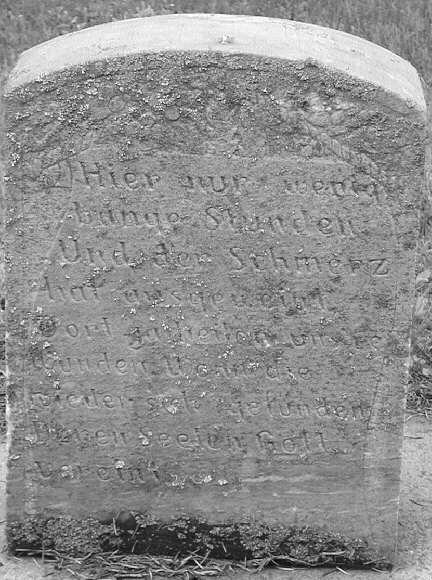 Hier nur wenig
bange Stunden
Und der Schmerz
hat ausgeweint
Dort da heilen unsre
Wunden Wenn die
wieder sich gefunden
Deren Seelen Gott
Vereint